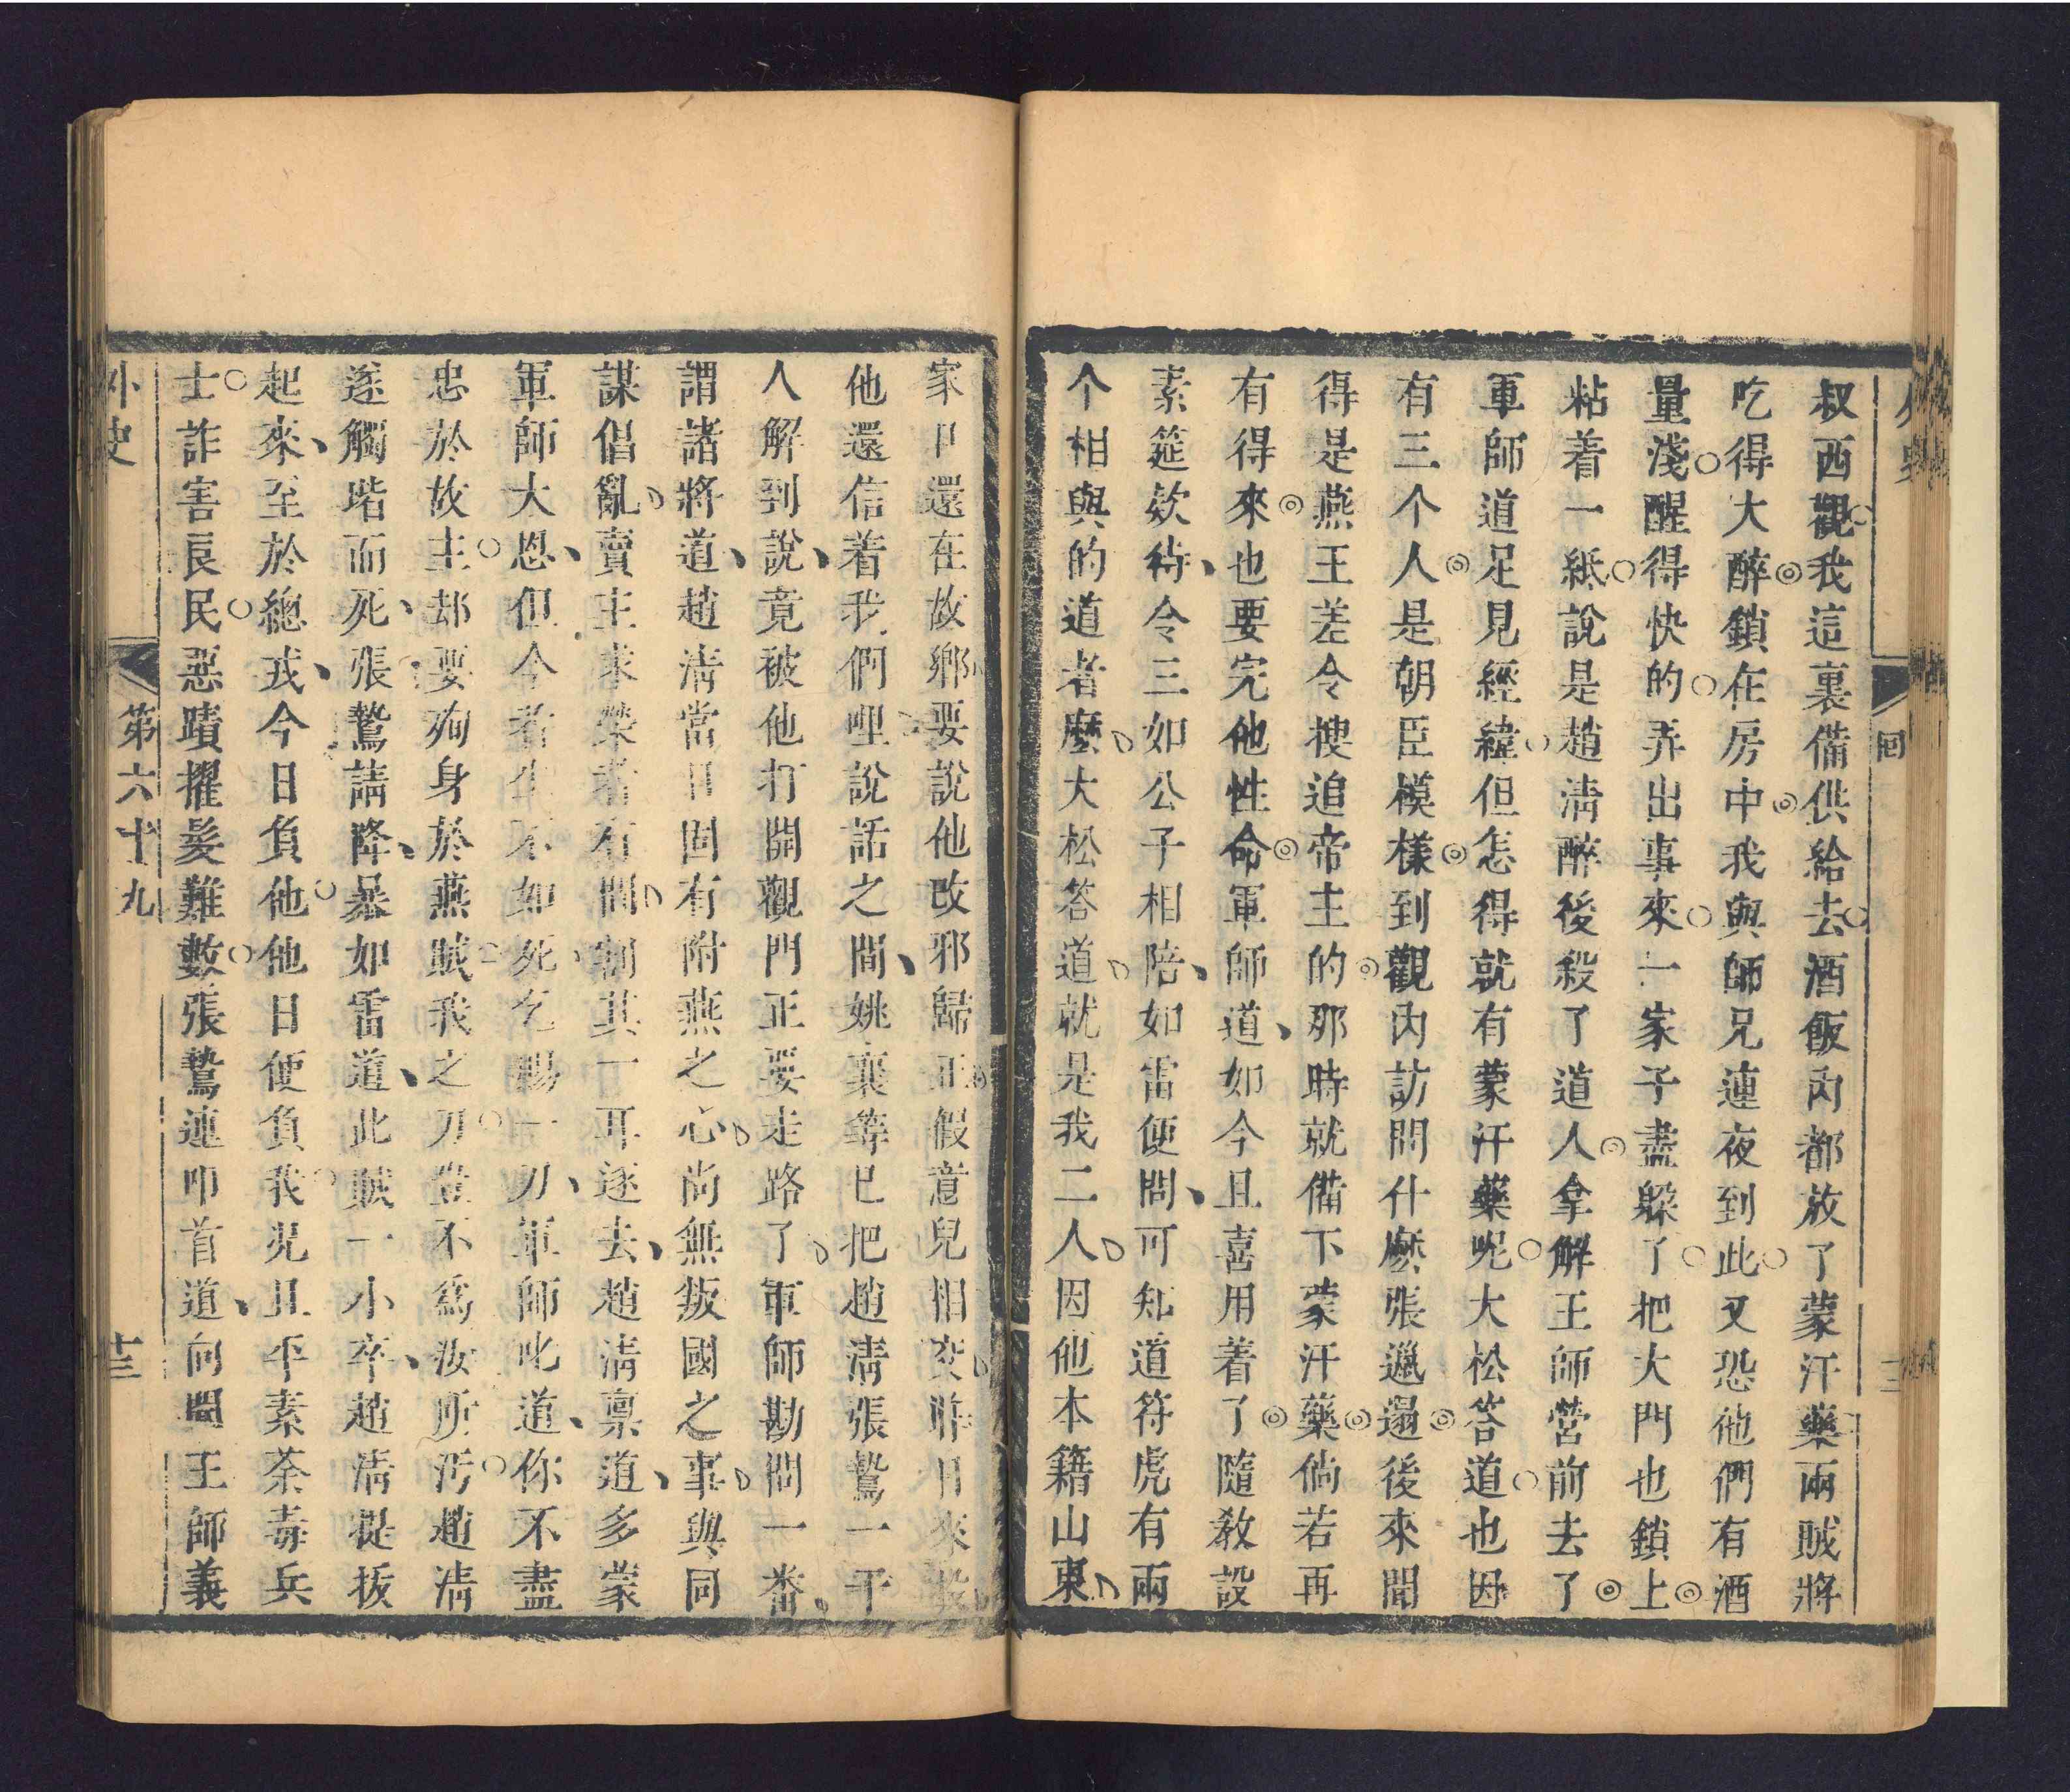 叔西觀我這裏備供給去酒飯內都放了蒙汗藥兩賊將
吃得大醉鎖在房中我與師兄連夜到此又恐他們有酒
量淺醒得快的弄出事來一家子盡躱了把大門也鎖上
粘着一紙說是趙清醉後殺了道人拿解王師營前去了
軍師道足見經緯但怎得就有蒙汗藥呢大松答道也因
有三个人是朝臣模樣到觀內訪問什麽張邋遢後來聞
得是燕王差令搜追帝主的那時就備下蒙汗藥倘若再
有得來也要完他性命軍師道如今且喜用着了隨教設
素筵欵待令三如公子相陪如雷便問可知道符虎有兩
个相與的道者麽大松答道就是我二人因他本籍山東
家口還在故鄉要說他改邪歸正假意兒相交昨日來
他還信着我們哩說話之間姚襄等已把趙清張鷙一干
人解到說竟被他打開觀門正要走路了軍師勘問一番
謂諸將道趙清當日固有附燕之心尚無叛國之事與同
謀倡亂賣主求榮者有間割其一耳逐去趙清禀道多蒙
軍師大恩但今者生不如死乞賜一刀軍師叱道你不盡
忠於故主却要殉身於燕賊我之刀豈不爲汝所汚趙清
遂觸堦而死張鷙請降暴如雷道此賊一小卒趙清提拔
起來至於總戎今日負他他日便負我况且平素荼毒兵
士詐害良民惡蹟擢髮難數張鷙連叩首道向聞王師義
外史
第六十九
十三
回